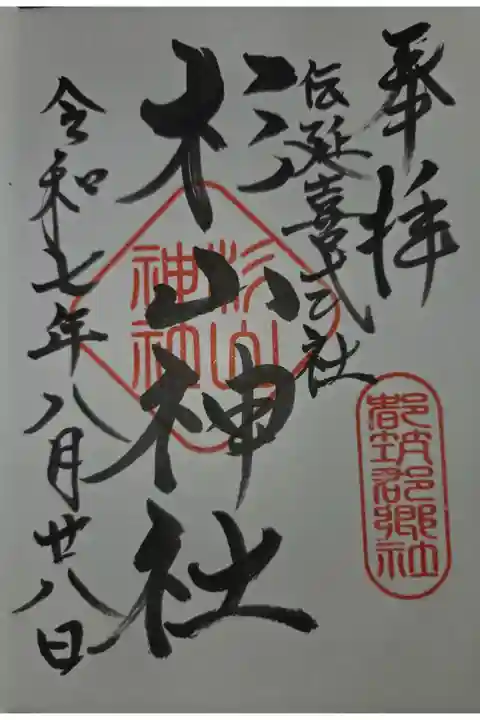 奉拝
伝延喜式社
杉山神社
令和七年八月廿八日
杉山
神社
都筑郡
郷社